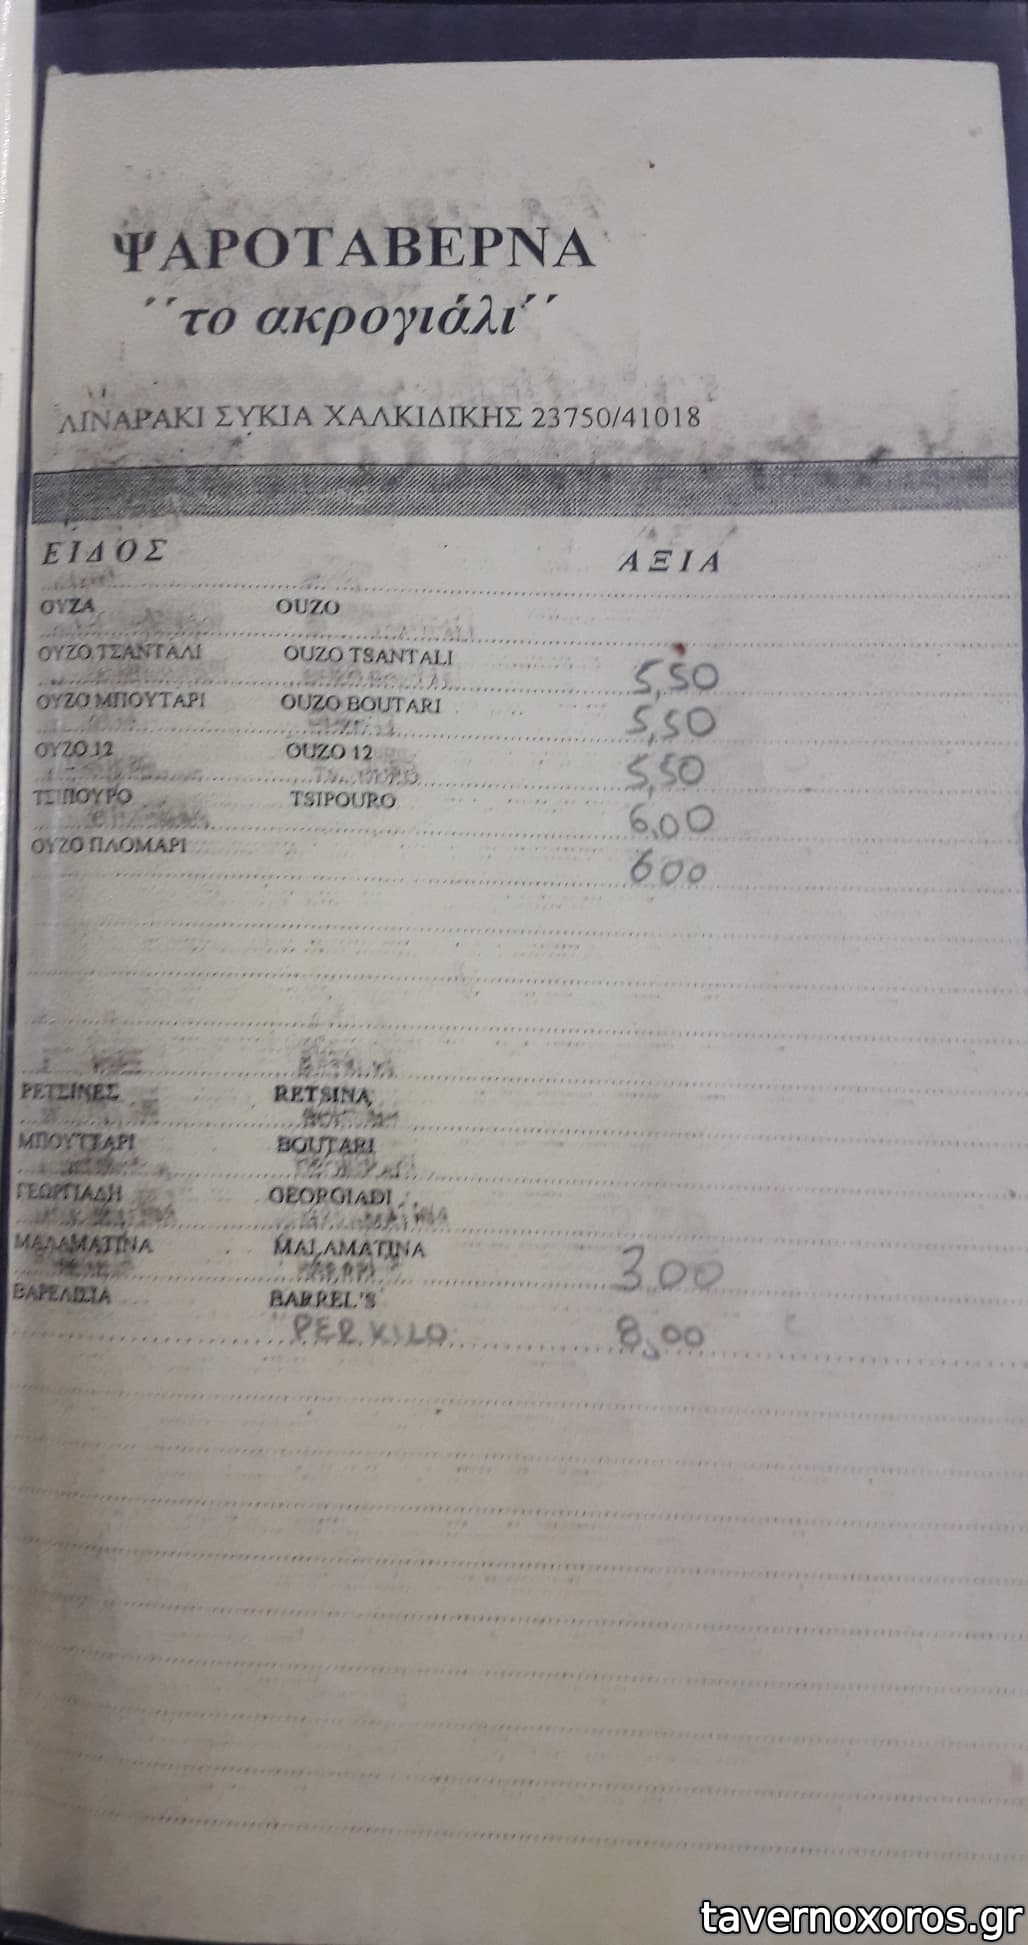 ΨΑΡΟΤΑΒΕΡΝΑ
΄΄το ακρογιάλι΄΄
ΛΙΝΑΡΑΚΙ ΣΥΚΙΑ ΧΑΛΚΙΔΙΚΗΣ 23750/41018
ΕΙΔΟΣ ΑΞΙΑ
ΟΥΖΑ OUZO
ΟΥΖΟ ΤΣΑΝΤΑΛΙ OUZO TSANTALI 5,50
ΟΥΖΟ ΜΠΟΥΤΑΡΙ OUZO BOUTARI 5,50
ΟΥΖΟ 12 OUZO 12 5,50
ΤΣΙΠΟΥΡΟ TSIPOURO 6,00
ΟΥΖΟ ΠΛΟΜΑΡΙ 600
ΡΕΤΣΙΝΕΣ RETSINA
ΜΠΟΥΤΤΑΡΙ BOUTARI
ΓΕΩΡΓΙΑΔΗ GEORGIADI
ΜΑΛΑΜΑΤΙΝΑ MALAMATINA 3,00
ΒΑΡΕΛΙΣΙΑ BARREL'S
PER KILO 8,00
tavernoxoros.gr